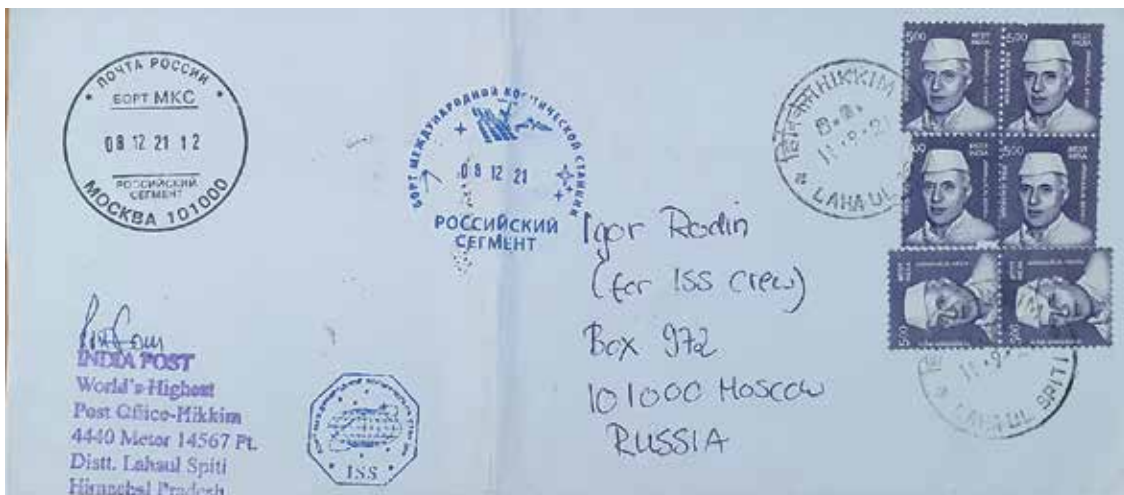 ПОЧТА РОССИИ
БОРТ МКС
08 12 21 12
РОССИЙСКИЙ
СЕГМЕНТ
МОСКВА 101000
БОРТ МЕЖДУНАРОДНОЙ КОСМИЧЕСКОЙ СТАНЦИИ
08 12 21
РОССИЙСКИЙ
СЕГМЕНТ
हिक्किम HIKKIM
LAHAUL
5.00
5.00
5.00
5.00
5.00
5.00
LAHAUL SPITI
Igor Rodin
(for ISS crew)
Box 972
101000 Moscow
RUSSIA
INDIA POST
World's Highest
Post Office-Hikkim
4440 Meter 14567 Ft.
Distt. Lahaul Spiti
Himachal Pradesh
ISS